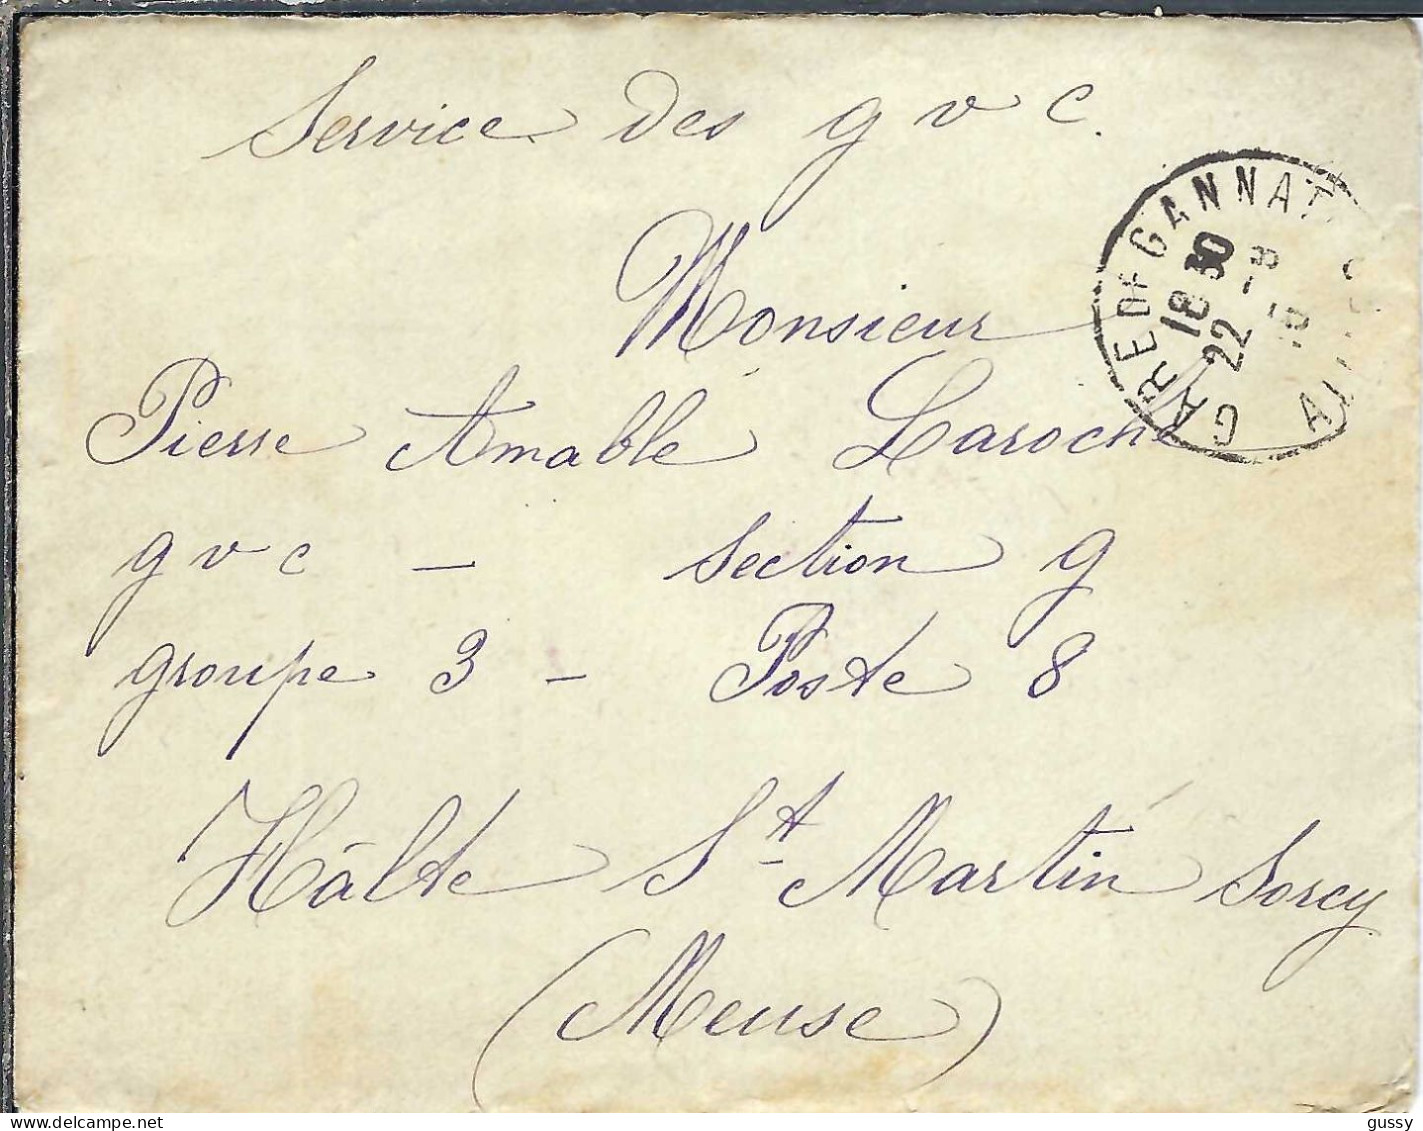 Service des g v c.
GARE DE GANNAT
18 30
22 - 8
Monsieur
Pierre Amable Laroche
g v c - section g
groupe 3 - Poste 8
Hâlte St Martin Sorcy
(Meuse)
delcampe.net
gussy